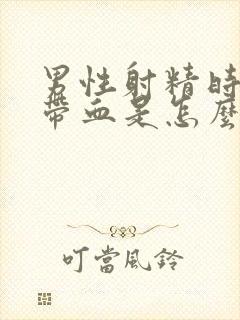 男性射精時
帶血是怎麼
叮當風鈴